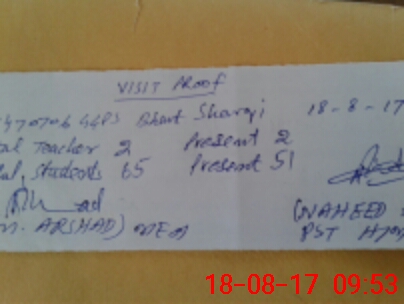 VISIT PROOF
470706 GGPS Bhart Sharqi 18-8-17
tal Teacher 2 Present 2
tal students 65 Present 51
(M. ARSHAD) MEA (NAHEED
PST
18-08-17 09:53